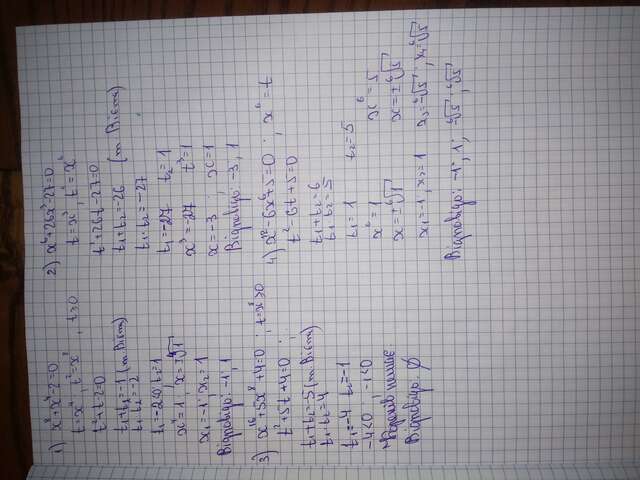 1) x⁸+x⁴-2=0
t=x⁴, t²=x⁸, t≥0
t²+t-2=0
t₁+t₂=-1 (т. Вієта)
t₁·t₂=-2
t₁=-2<0, t₂=1
x⁴=1, x=±⁴√1
x₁=-1, x₂=1
Відповідь: -1, 1
2) x⁶+26x³-27=0
t=x³, t²=x⁶
t²+26t-27=0
t₁+t₂=-26 (т. Вієта)
t₁·t₂=-27
t₁=-27 t₂=1
x³=-27 t³=1
x=-3; x=1
Відповідь: -3, 1
3) x¹⁶+5x⁸+4=0; t=x⁸≥0
t²+5t+4=0;
t₁+t₂=-5 (т. Вієта)
t₁·t₂=4
t₁=-4 t₂=-1
-4<0, -1<0
Коренів немає
Відповідь: ∅
4) x¹²-6x⁶+5=0; x⁶=t
t²-6t+5=0
t₁+t₂=6
t₁·t₂=5
t₁=1 t₂=5
x⁶=1 x⁶=5
x=±⁶√1 x=±⁶√5
x₁=-1, x₂=1 x₃=-⁶√5; x₄=⁶√5
Відповідь: -1; 1; -⁶√5; ⁶√5